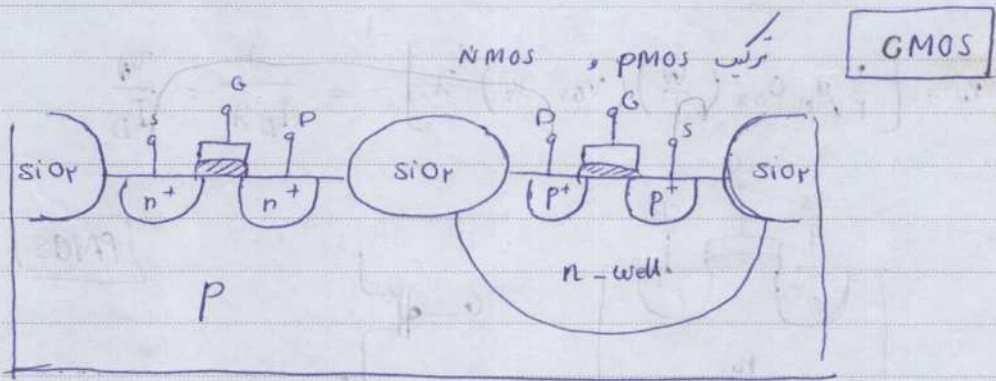 CMOS
ترکیب PMOS و NMOS
G G
S D D S
SiO۲ n+ n+ SiO۲ p+ p+ SiO۲
n-well
P